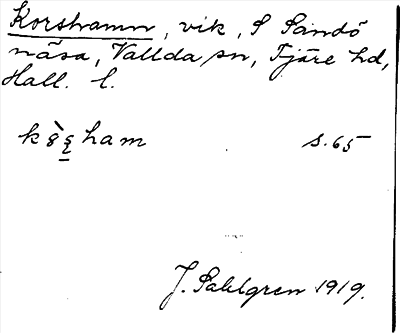 Korshamn, vik, S Sandö
näsa, Vallda sn, Fjäre hd,
Hall. l.
s. 65
J. Sahlgren 1919.